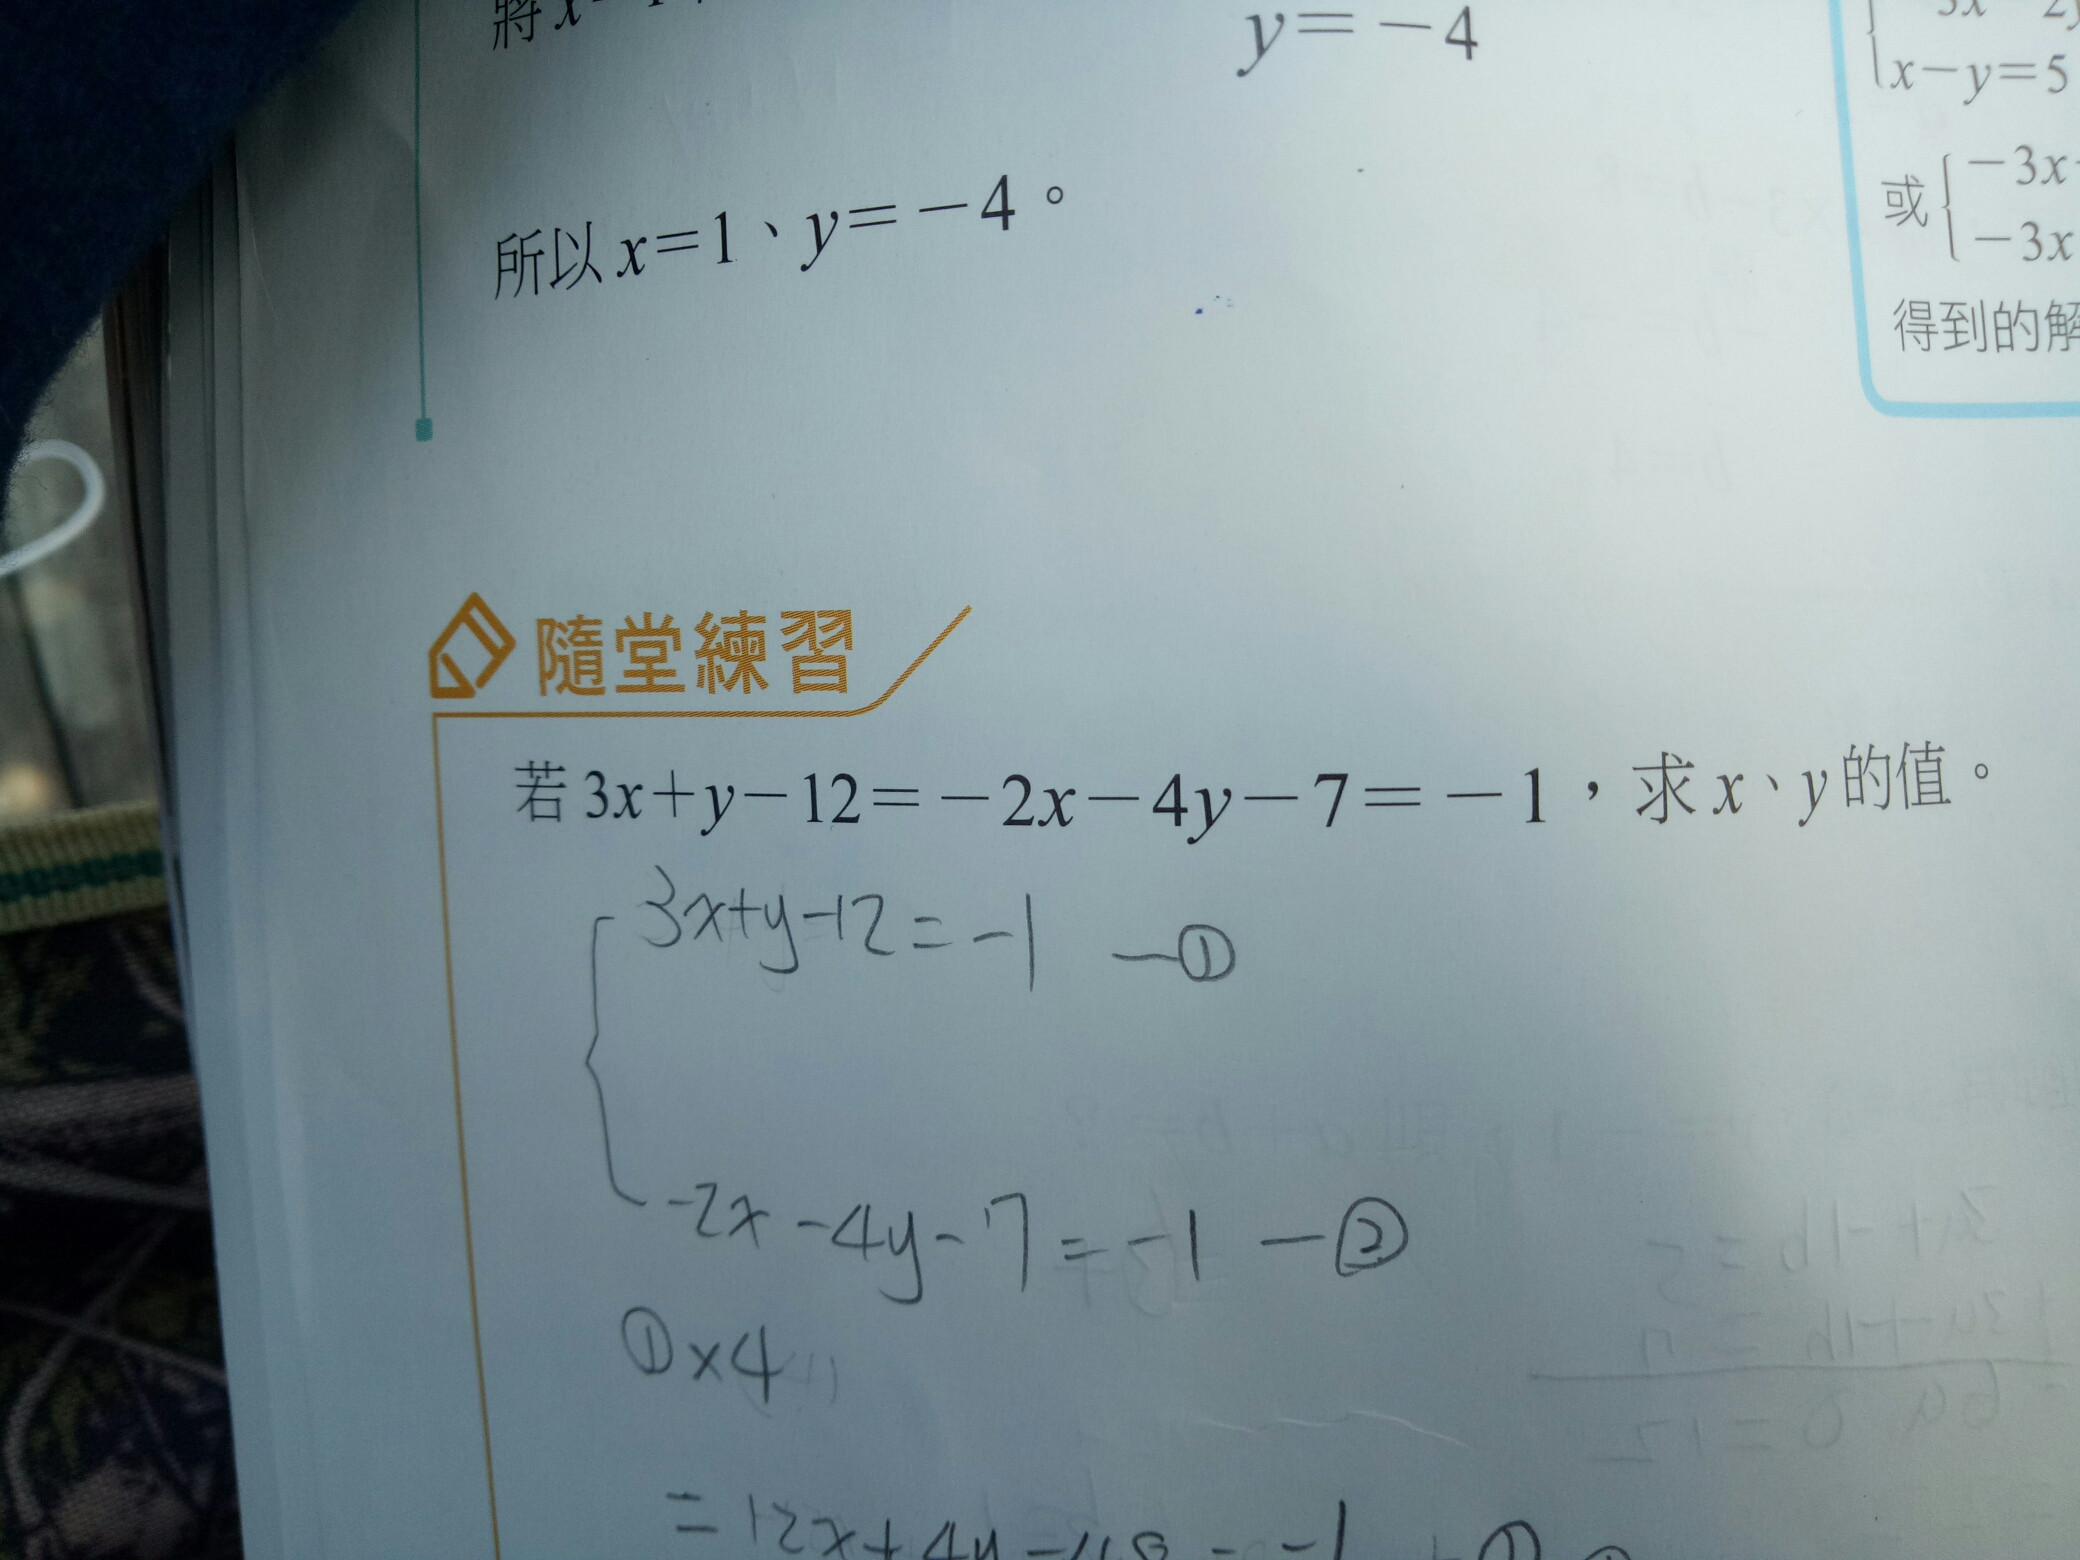 將 x
y=-4
所以 x=1、y=-4。
x-y=5
或 -3x
-3x
得到的解
隨堂練習
若 3x+y-12=-2x-4y-7=-1，求 x、y 的值。
3x+y-12=-1 —①
-2x-4y-7=-1 —②
①×4
=12x+4y-48=-1